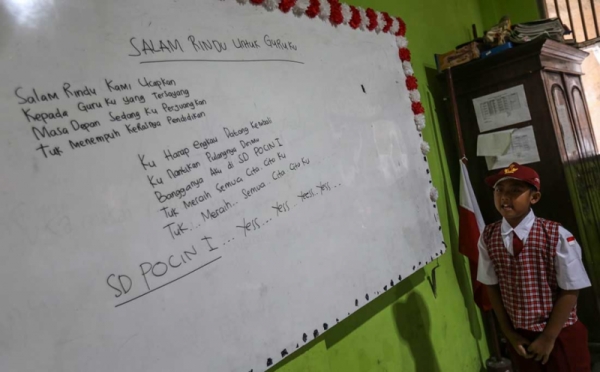 SALAM RINDU UNTUK GURUKU
Salam Rindu Kami Ucapkan
Kepada Guru Ku yang Terlayang
Masa Depan Sedang Ku Perjuangkan
Tuk Menempuh Kerasnya Pendidikan
Ku Harap Engkau Datang Kembali
Ku Nantikan Pulangnya Dirimu
Bangganya Aku di SD POCIN I
Tuk Meraih Semua Cita Cita Ku
Tuk... Meraih.. Semua Cita Cita Ku
SD POCIN I.... Yess... Yess ..Yess..Yess...